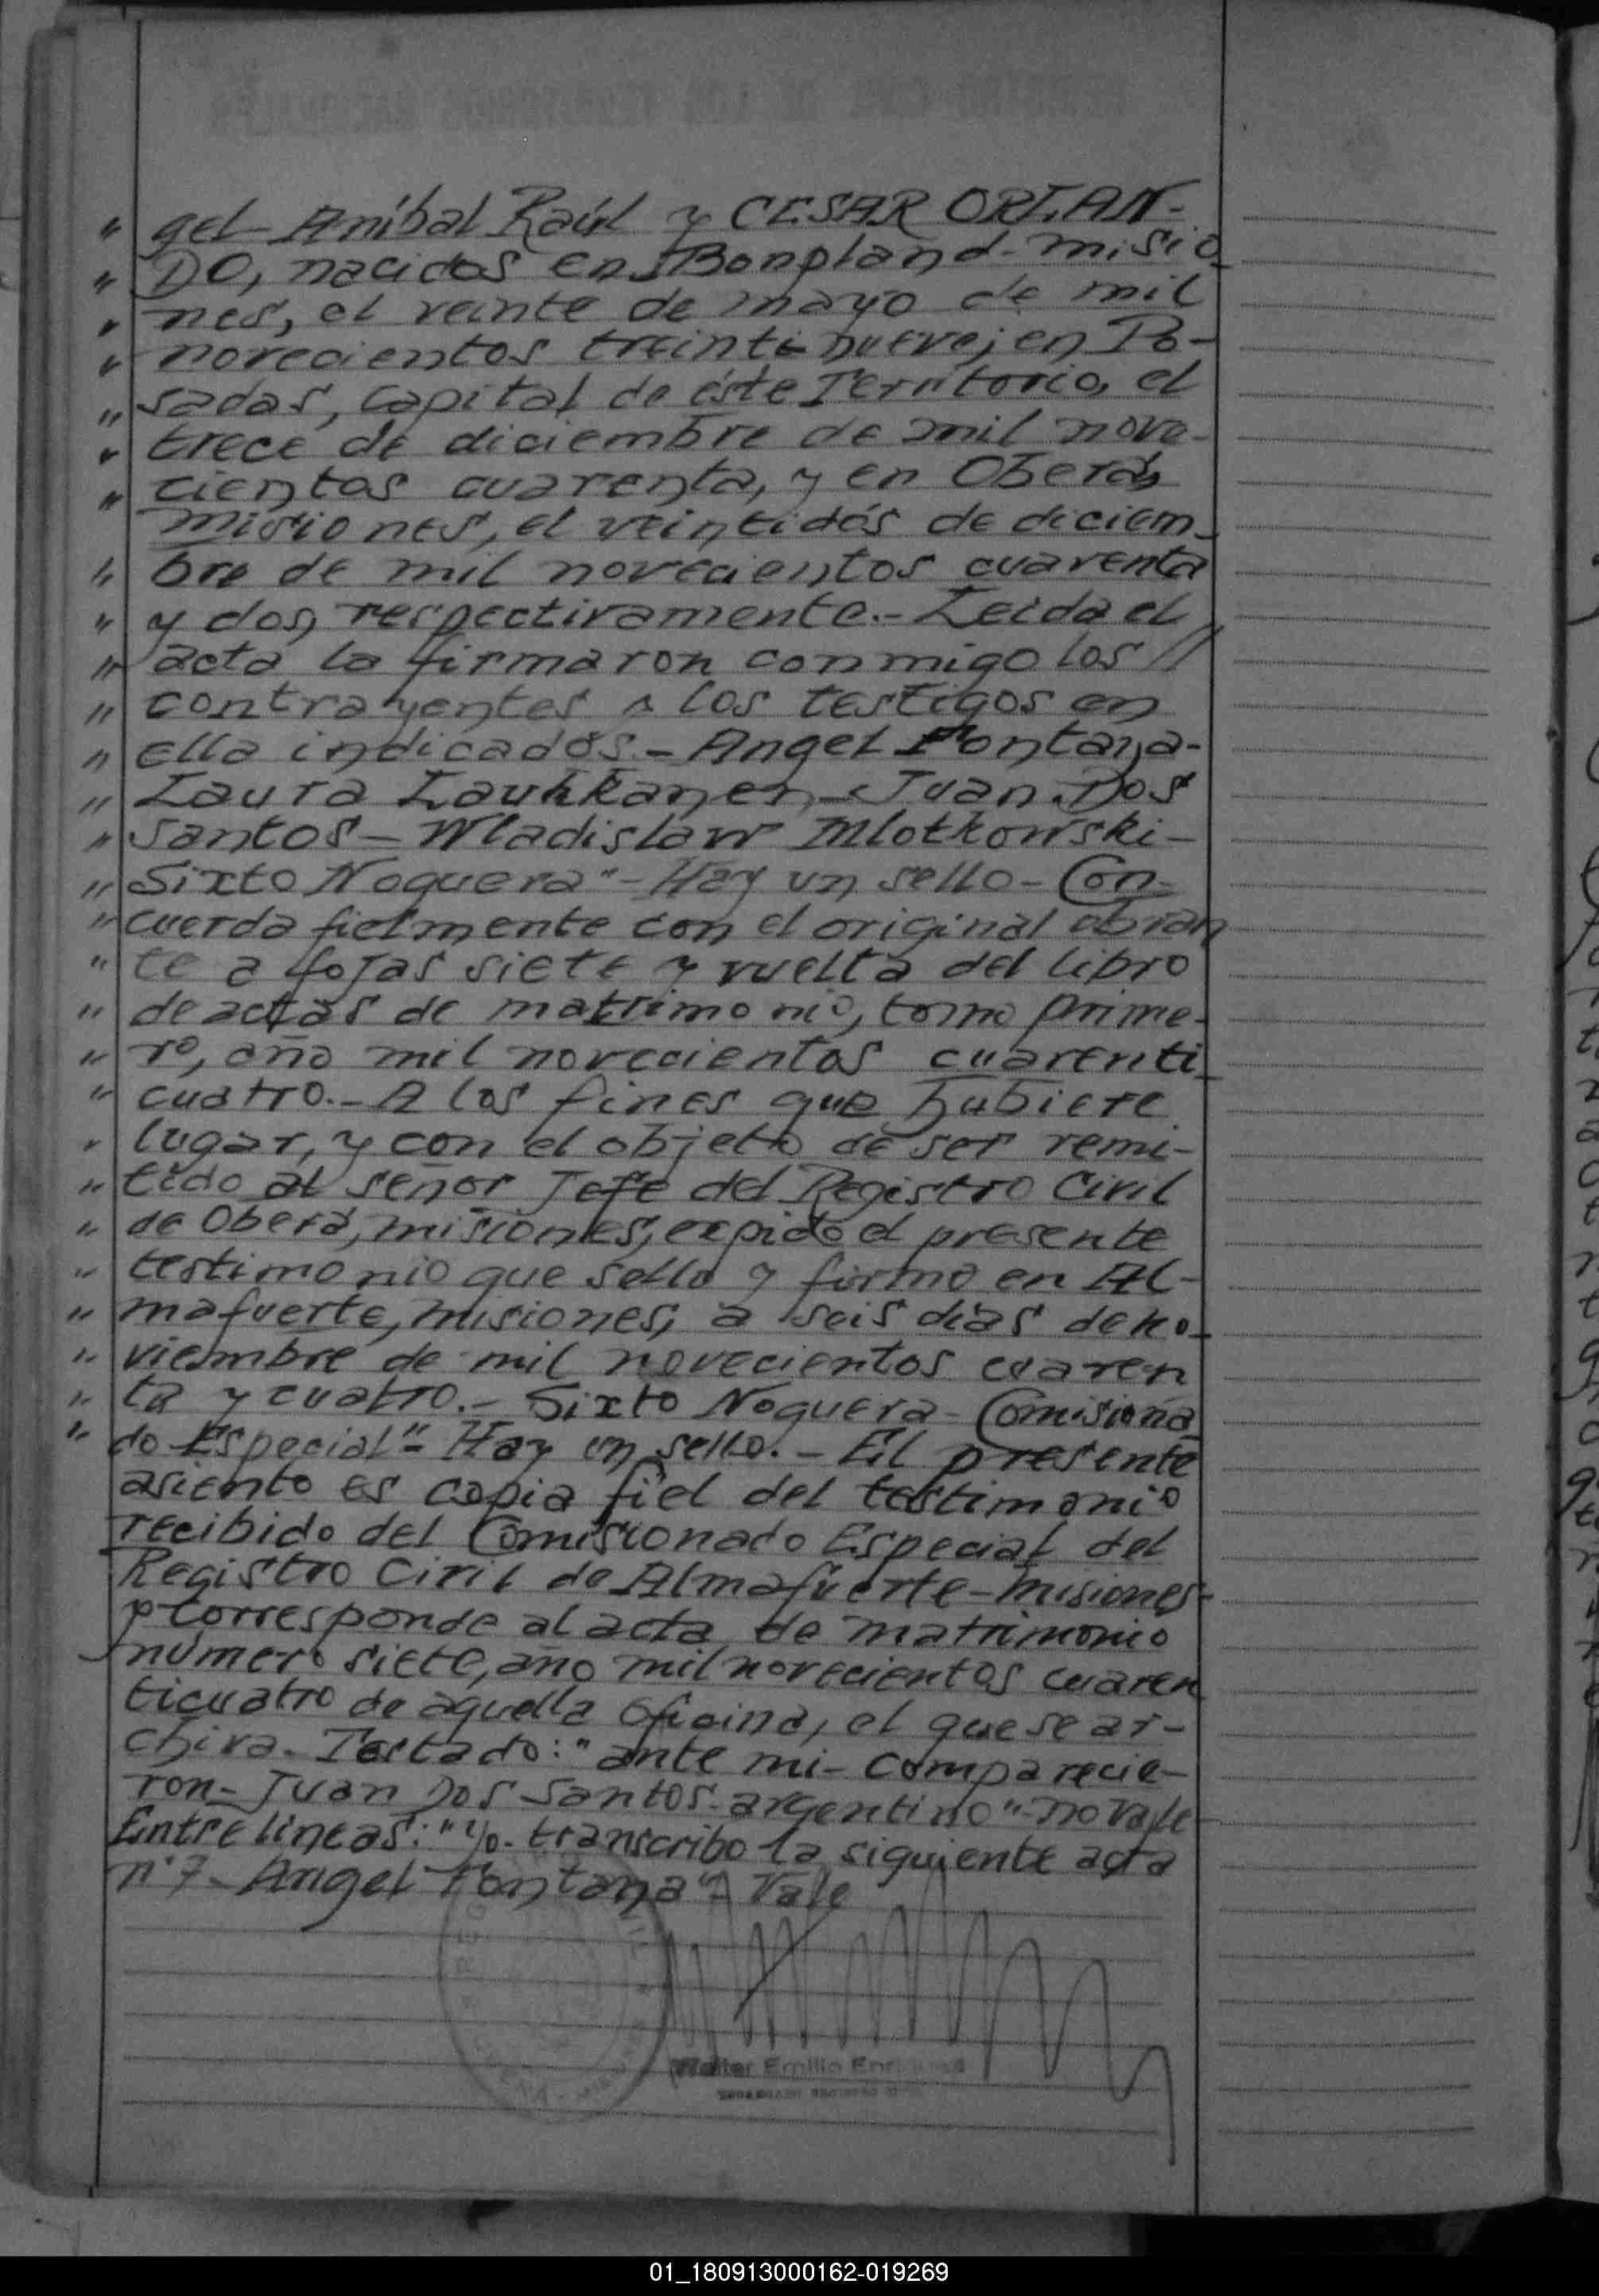 " gel- Aníbal Raúl y CESAR ORLAN-
" DO, nacidos en Bonpland- Misio-
" nes, el veinte de mayo de mil
" novecientos treintinueve; en Po-
" sadas, capital de éste Territorio, el
" trece de diciembre de mil nove-
" cientos cuarenta, y en Oberá,
Misiones, el veintidós de diciem-
" bre de mil novecientos cuarenta
" y dos, respectivamente.- Leida el
" acta la firmaron conmigo los //
" contrayentes los testigos en
" ella indicados.- Angel Fontana-
" Laura Laukkanen- Juan Dos
" Santos- Wladislaw Mlotkowski-
" Sixto Noguera"- Hay un sello- Con-
" cuerda fielmente con el original obran
" te a fojas siete y vuelta del libro
" de actas de matrimonio, tomo prime-
" ro, año mil novecientos cuarenti
" cuatro.- A los fines que hubiere
" lugar, y con el objeto de ser remi-
" tido al señor Jefe del Registro Civil
" de Oberá, Misiones, expido el presente
" testimonio que sello y firmo en Al-
" mafuerte, Misiones, a seis días de no-
" viembre de mil novecientos cuaren
" ta y cuatro.- Sixto Noguera- Comisiona
" do Especial"- Hay un sello.- El presente
asiento es copia fiel del testimonio
recibido del Comisionado Especial del
Registro Civil de Almafuerte- Misiones-
y corresponde al acta de matrimonio
número siete, año mil novecientos cuaren
ticuatro de aquella oficina, el que se ar-
chiva. Testado: "ante mi- comparecie-
ron- Juan Dos Santos- argentino"- no vale
Entre lineas: "yo- transcribo la siguiente acta
n° 7- Angel Fontana"- Vale
Walter Emilio
01_180913000162-019269